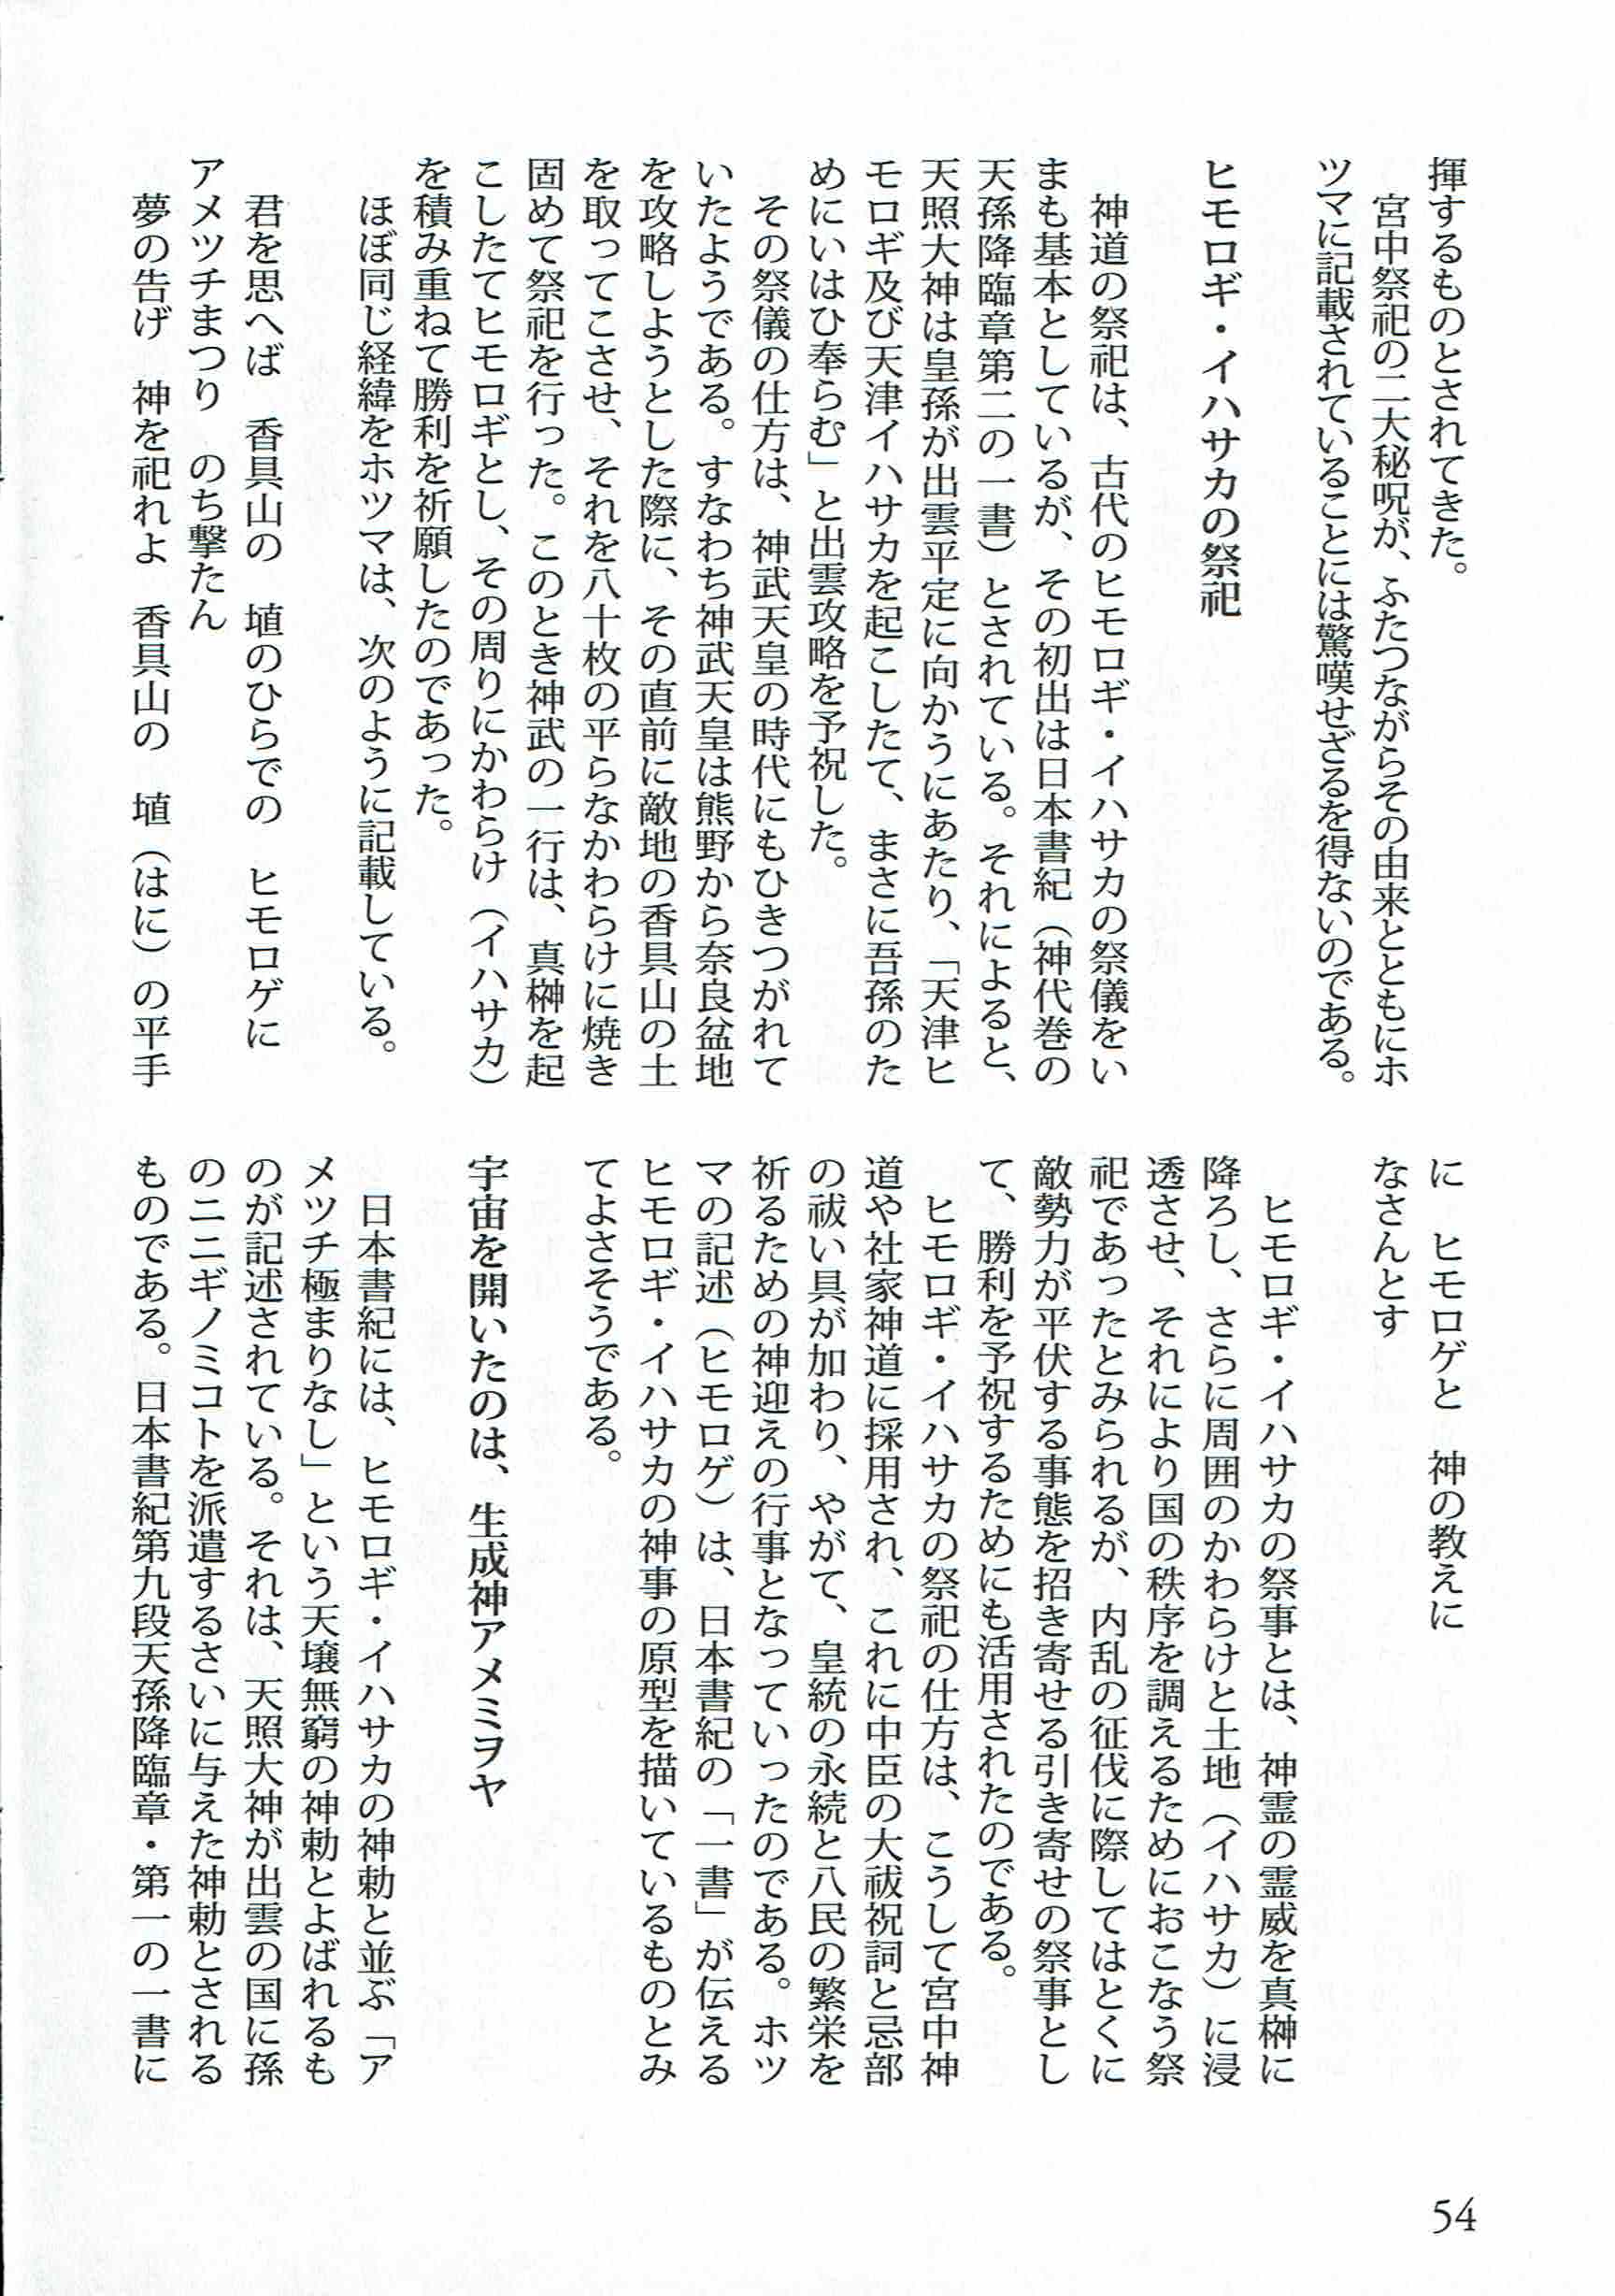 揮するものとされてきた。
宮中祭祀の二大秘呪が、ふたつながらその由来とともにホ
ツマに記載されていることには驚嘆せざるを得ないのである。
ヒモロギ・イハサカの祭祀
神道の祭祀は、古代のヒモロギ・イハサカの祭儀をい
まも基本としているが、その初出は日本書紀（神代巻の
天孫降臨章第二の一書）とされている。それによると、
天照大神は皇孫が出雲平定に向かうにあたり、「天津ヒ
モロギ及び天津イハサカを起こしたて、まさに吾孫のた
めにいはひ奉らむ」と出雲攻略を予祝した。
その祭儀の仕方は、神武天皇の時代にもひきつがれて
いたようである。すなわち神武天皇は熊野から奈良盆地
を攻略しようとした際に、その直前に敵地の香具山の土
を取ってこさせ、それを八十枚の平らなかわらけに焼き
固めて祭祀を行った。このとき神武の一行は、真榊を起
こしたてヒモロギとし、その周りにかわらけ（イハサカ）
を積み重ねて勝利を祈願したのであった。
ほぼ同じ経緯をホツマは、次のように記載している。
君を思へば　香具山の　埴のひらでの　ヒモロゲに
アメツチまつり　のち撃たん
夢の告げ　神を祀れよ　香具山の　埴（はに）の平手
に　ヒモロゲと　神の教えに
なさんとす
ヒモロギ・イハサカの祭事とは、神霊の霊威を真榊に
降ろし、さらに周囲のかわらけと土地（イハサカ）に浸
透させ、それにより国の秩序を調えるためにおこなう祭
祀であったとみられるが、内乱の征伐に際してはとくに
敵勢力が平伏する事態を招き寄せる引き寄せの祭事とし
て、勝利を予祝するためにも活用されたのである。
ヒモロギ・イハサカの祭祀の仕方は、こうして宮中神
道や社家神道に採用され、これに中臣の大祓祝詞と忌部
の祓い具が加わり、やがて、皇統の永続と八民の繁栄を
祈るための神迎えの行事となっていったのである。ホツ
マの記述（ヒモロゲ）は、日本書紀の「一書」が伝える
ヒモロギ・イハサカの神事の原型を描いているものとみ
てよさそうである。
宇宙を開いたのは、生成神アメミヲヤ
日本書紀には、ヒモロギ・イハサカの神勅と並ぶ「ア
メツチ極まりなし」という天壌無窮の神勅とよばれるも
のが記述されている。それは、天照大神が出雲の国に孫
のニニギノミコトを派遣するさいに与えた神勅とされる
ものである。日本書紀第九段天孫降臨章・第一の一書に
54